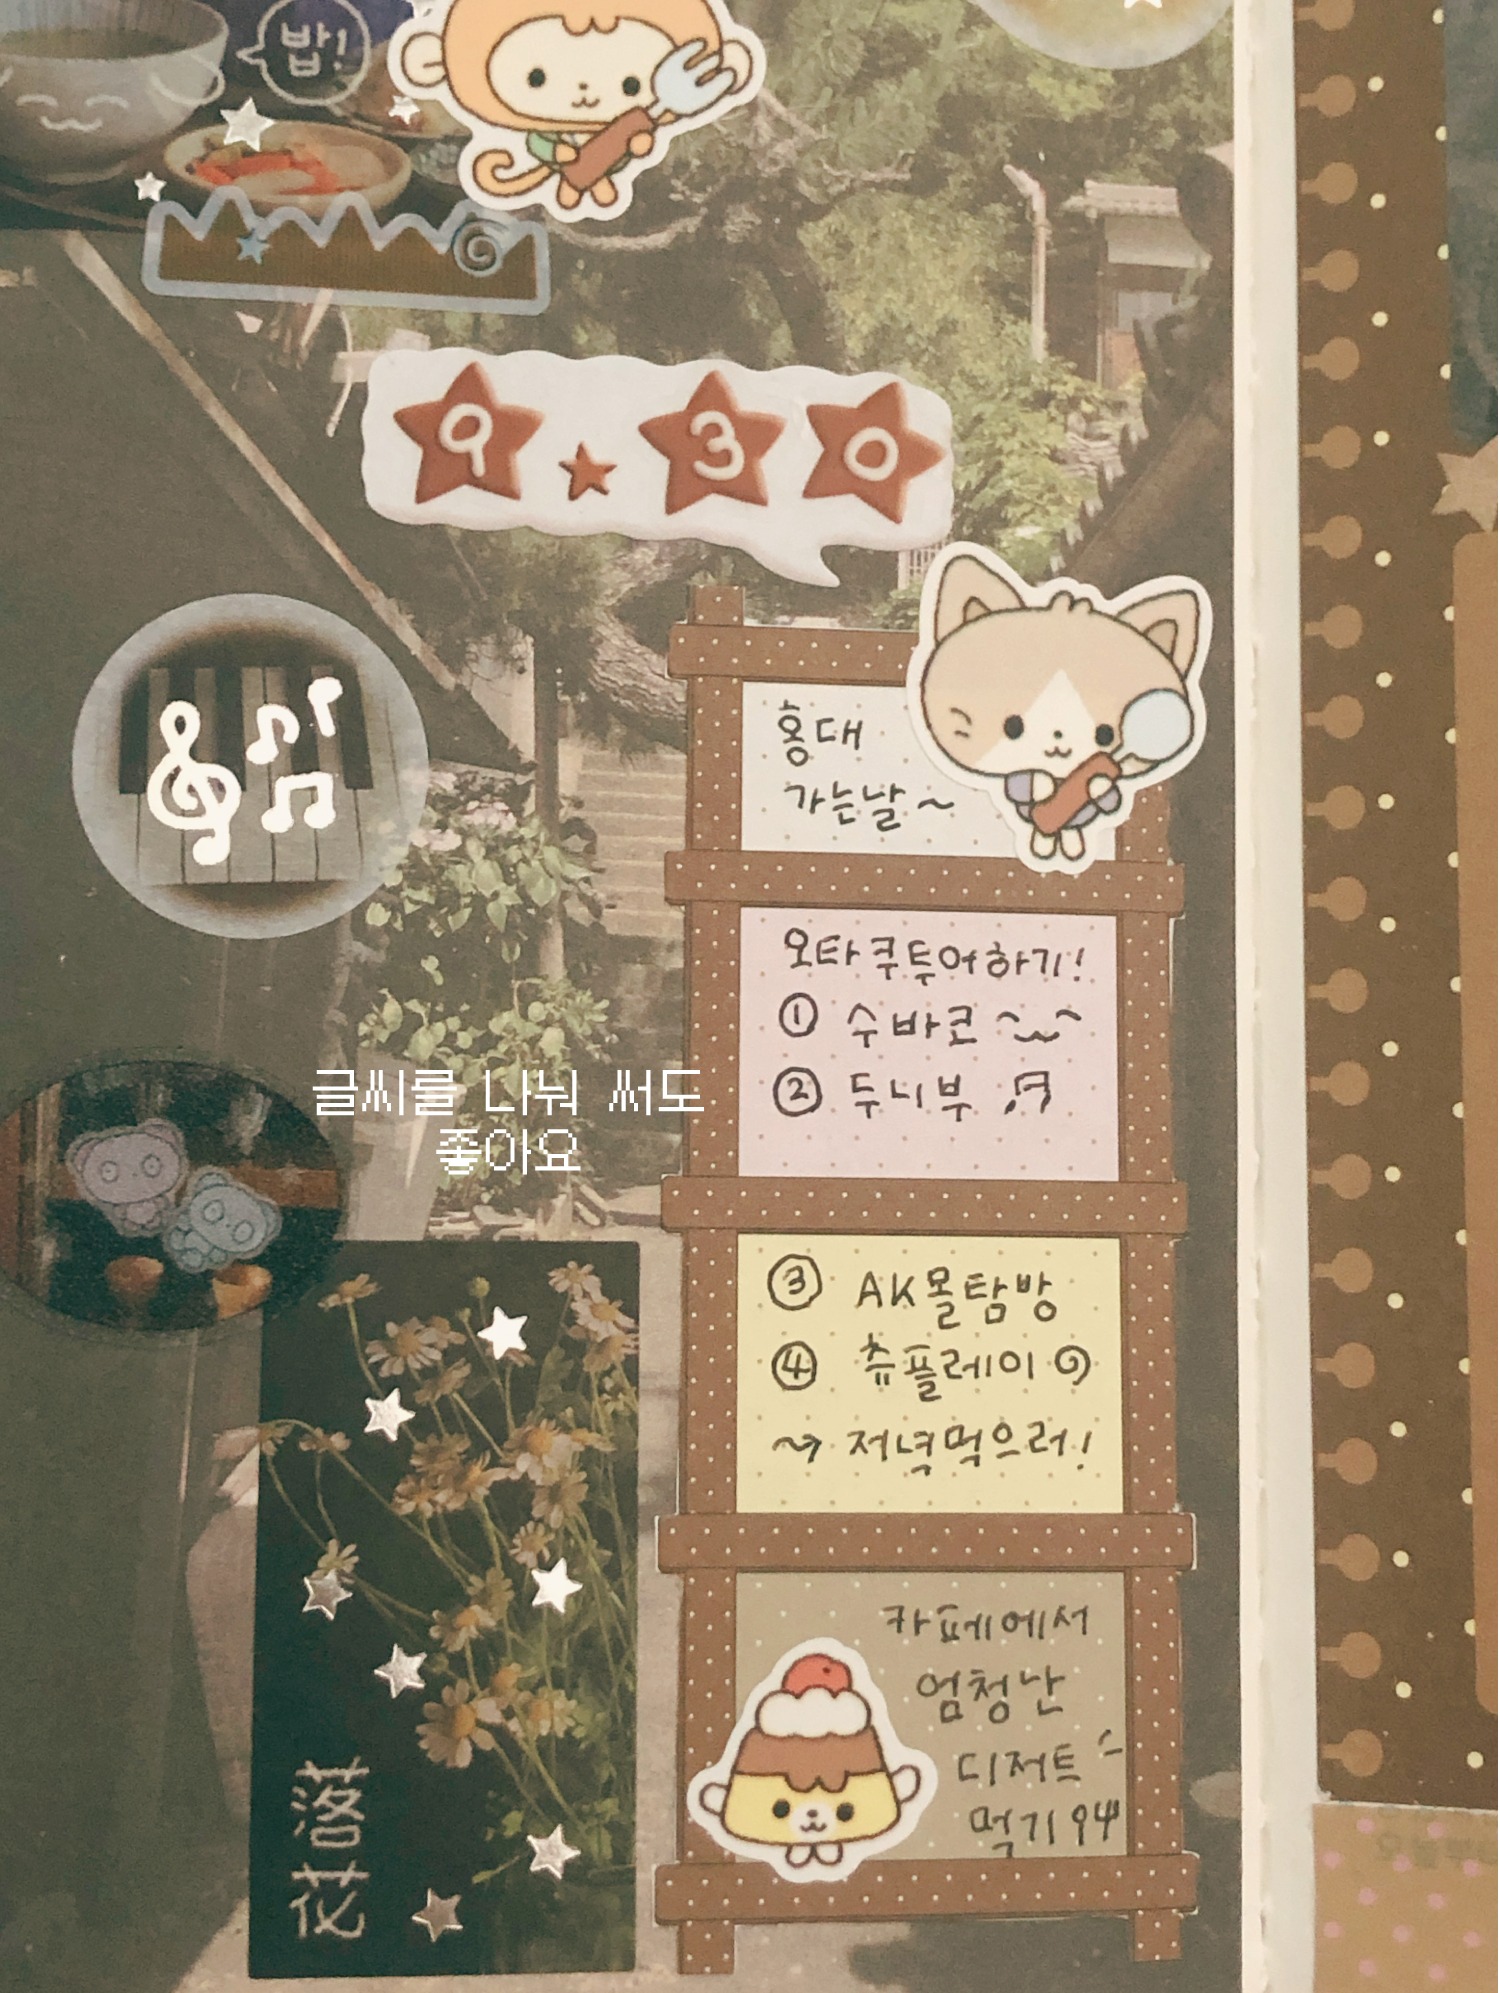 밥!
9.30
홍대
가는날~
오타쿠투어하기!
① 수바코
② 두니부
글씨를 나눠 써도
좋아요
③ AK몰탐방
④ 츄플레이
저녁먹으러!
카페에서
엄청난
디저트
먹기
落花